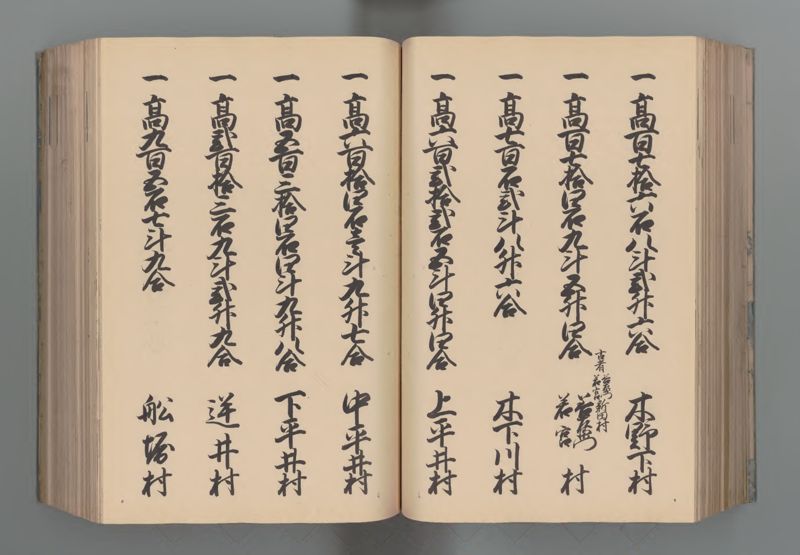 一 高百七拾六石八斗弐升六合 木野下村
一 高百七拾四石九斗五升四合 若宮村
古者
新田村
一 高七百石弐斗八升六合 木下川村
一 高六百弐拾弐石五斗四升四合 上平井村
一 高六百拾四石三斗九升七合 中平井村
一 高五百二拾四石四斗九升八合 下平井村
一 高弐百拾二石九斗弐升九合 逆井村
一 高九百五石七斗九合 船堀村